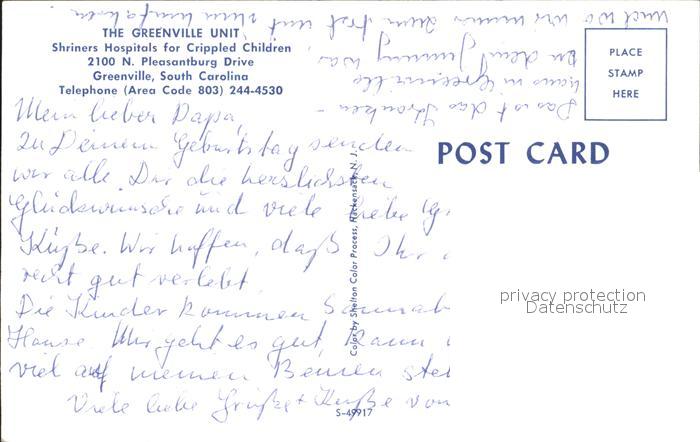 THE GREENVILLE UNIT
Shriners Hospitals for Crippled Children
2100 N. Pleasantburg Drive
Greenville, South Carolina
Telephone (Area Code 803) 244-4530
PLACE
STAMP
HERE
POST CARD
Das ist das Kranken-
haus in Greenville
in dem Jimmy was
und wo wir immer zum Test mit ihm
Mein lieber Papa,
Zu Deinem Geburtstag senden
wir alle Dir die herzlichsten
Glückwünsche und viele liebe
Küße. Wir hoffen, daß Ihr
recht gut verlebt.
Die Kinder kommen
Hause Mir geht es gut, kann
viel auf meinen Beinen
Viele liebe Grüße + Küße von
Color by Shelton Color Process, Hackensack, N. J.
S-49917
privacy protection
Datenschutz